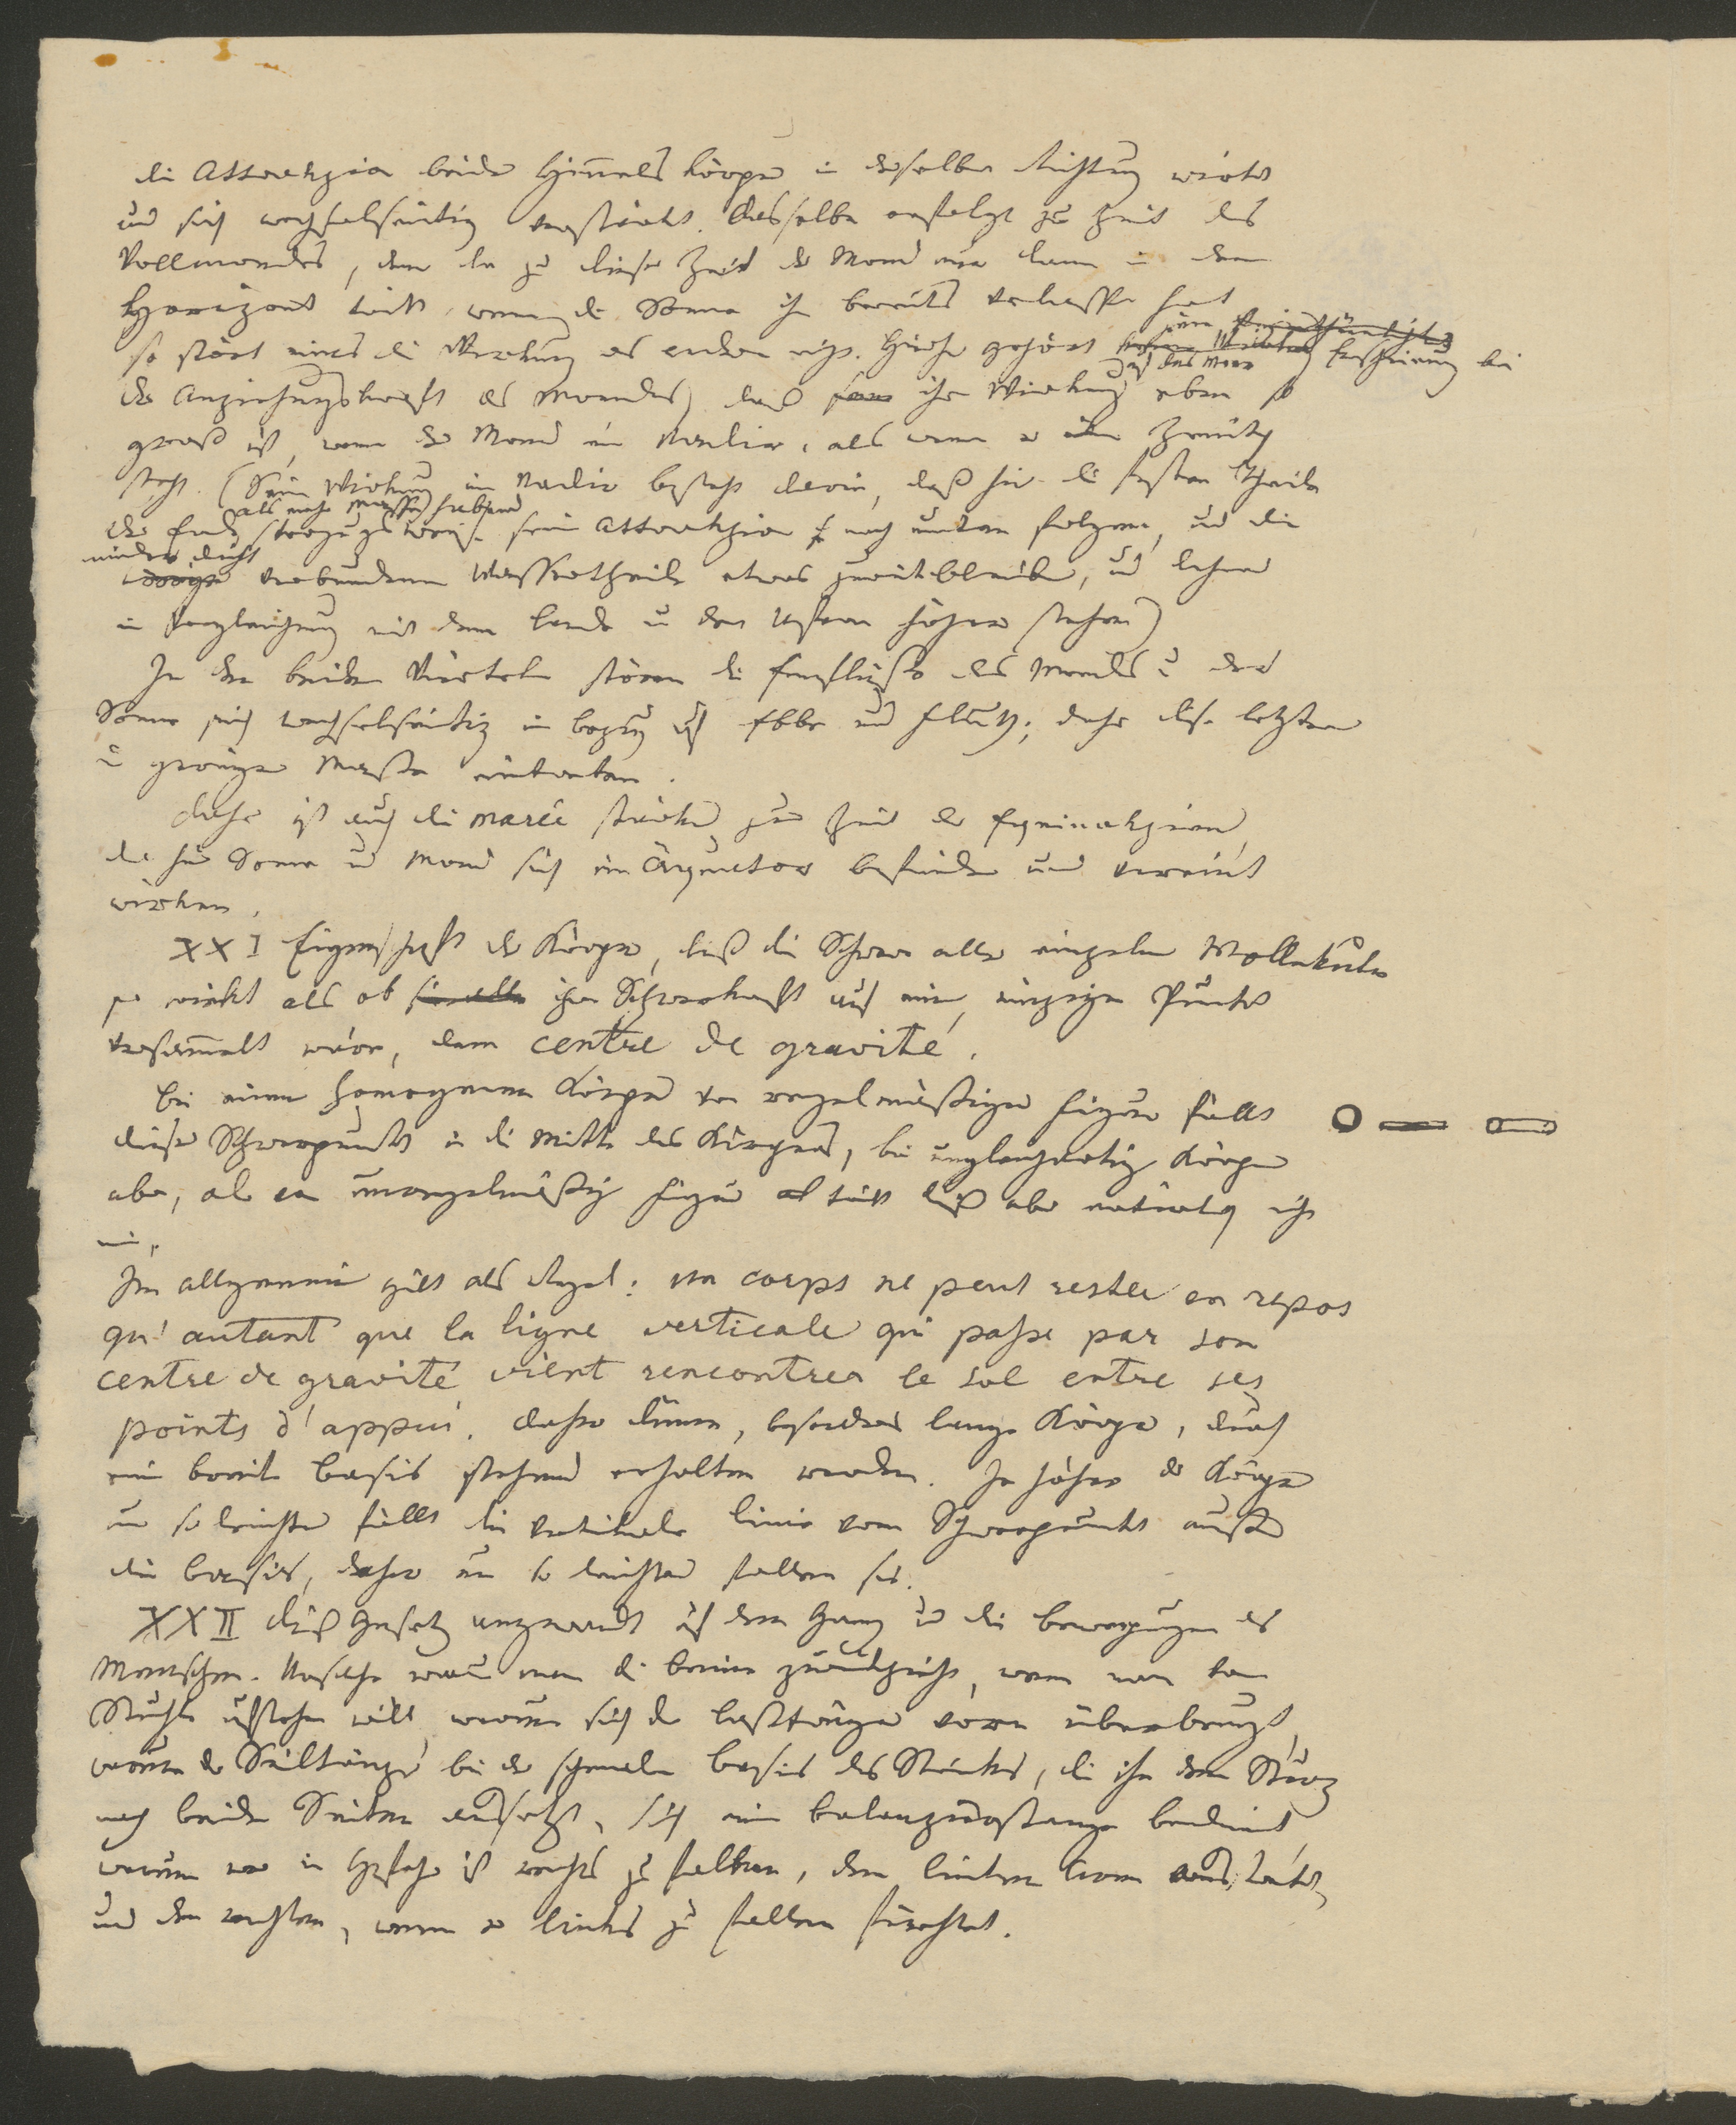 die Attrakzion beider Himmelskörper in derselben Richtung wirkt
und sich wechselseitig verstärkt. Dasselbe erfolgt zur Zeit des
Vollmondes, denn da zu dieser Zeit der Mond nur dann in den
Horizont tritt, wenn die Sonne ihn bereits verlassen hat
so stört eines die Wirkung des andern nicht. Hierher gehört eine Erscheinung bei
der Anziehungskraft des Mondes, daß ihre Wirkung auf das Meer eben so
groß ist, wenn der Mond im Nadir, als wenn er im Zenith
steht. (Seine Wirkung im Nadir besteht darin, daß hier die festen Theile
der Erde als mehr Masse habend vorzugsweise seiner Attrakzion nach unten folgen, und die
minder dicht verbundenen Wassertheile etwas zurückbleiben, und daher
in Vergleichung mit dem Lande u den Ufern höher stehen)
In den beiden Vierteln stören die Einflüsse des Mondes u der
Sonne sich wechselseitig in bezug auf Ebbe und Fluth; daher diese letztern
in geringer Maße eintreten.
Daher ist auch die marée stärker zur Zeit der Equinokzien,
da hier Sonne und Mond sich im Äquator befinden und vereint
wirken.
XXI Eigenschaft der Körper, daß die Schwere aller einzelnen Mollekule
so wirkt als ob ihre Schwerkraft auf einem einzigen Punkte
versammelt wäre, dem centre de gravité.
Bei einem homogenen Körper von regelmäßiger Figur fällt
dieser Schwerpunkt in die Mitte des Körpers, bei ungleichartigen Körpern
aber, oder von unregelmäßiger Figur tritt dieß aber natürlich nicht
ein.
Im allgemeinen gilt als Regel: un corps ne peut rester en repos
qu'autant que la ligne verticale qui passe par son
centre de gravité vient rencontrer le sol entre ses
points d'appui. Daher dünne, besonders lange Körper, durch
eine breite Basis stehend erhalten werden. Je höher der Körper
um so leichter fällt die vertikale Linie vom Schwerpunkt außer
die Basis, daher um so leichter fallen sie.
XXII Dieß Gesetz angewandt auf den Gang und die Bewegungen des
Menschen. Ursache warum man die Beine zurückzieht, wenn man vom
Stuhle aufstehen will, warum sich der Lastträger vorn überbeugt,
warum der Seiltänzer bei der schmalen Basis des Stricks, die ihn dem Sturz
nach beiden Seiten aussetzt, sich einer Balanzierstange bedient,
warum wer in Gefahr ist rechts zu fallen, den linken Arm ausstreckt,
und den rechten, wenn er links zu fallen fürchtet.